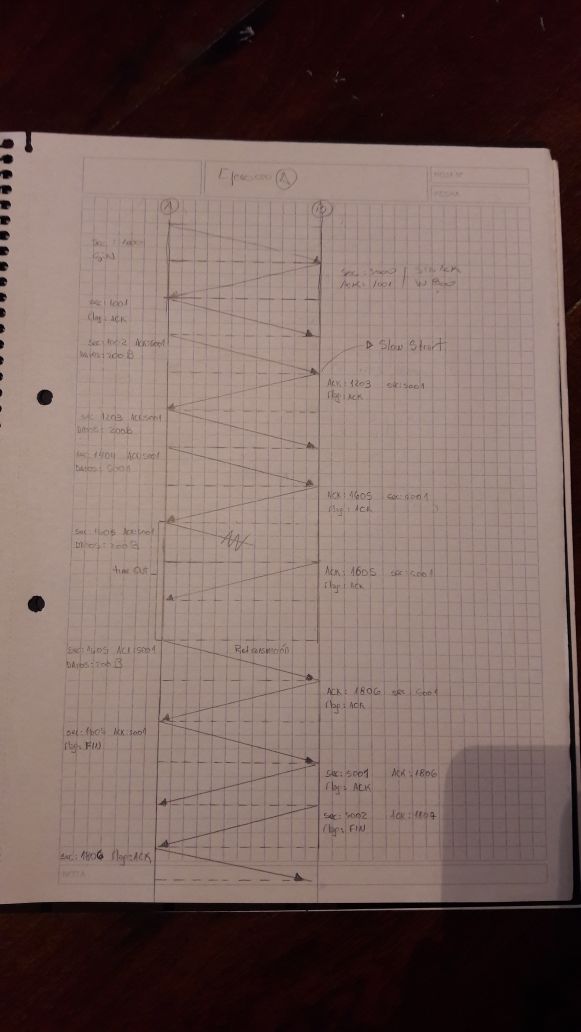 Ejercicio A
NOTA Nº
FECHA
A
B
SYN
Sec: 5000 | Sin ACK
Ack: 1001 | W 800
Sec: 1001
flag: ACK
Sec: 1002 ACK:5001
DATOS: 200B
Slow Start
ACK: 1203 sec: 5001
flag: ACK
sec: 1203 ACK:5001
DATOS: 200B
sec: 1404 ACK:5001
ACK: 1605 sec: 5001
flag: ACK
sec: 1605 ACK:5001
DATOS: 200B
time OUT
ACK: 1605 sec: 5001
flag: ACK
sec: 1605 ACK:5001
DATOS: 200B
Retransmisión
ACK: 1806 sec: 5001
flag: ACK
sec: 1805 ACK:5001
flag: FIN
sec: 5001 ACK: 1806
flag: ACK
sec: 5002
flag: FIN
sec: 1806 flag: ACK
NOTA